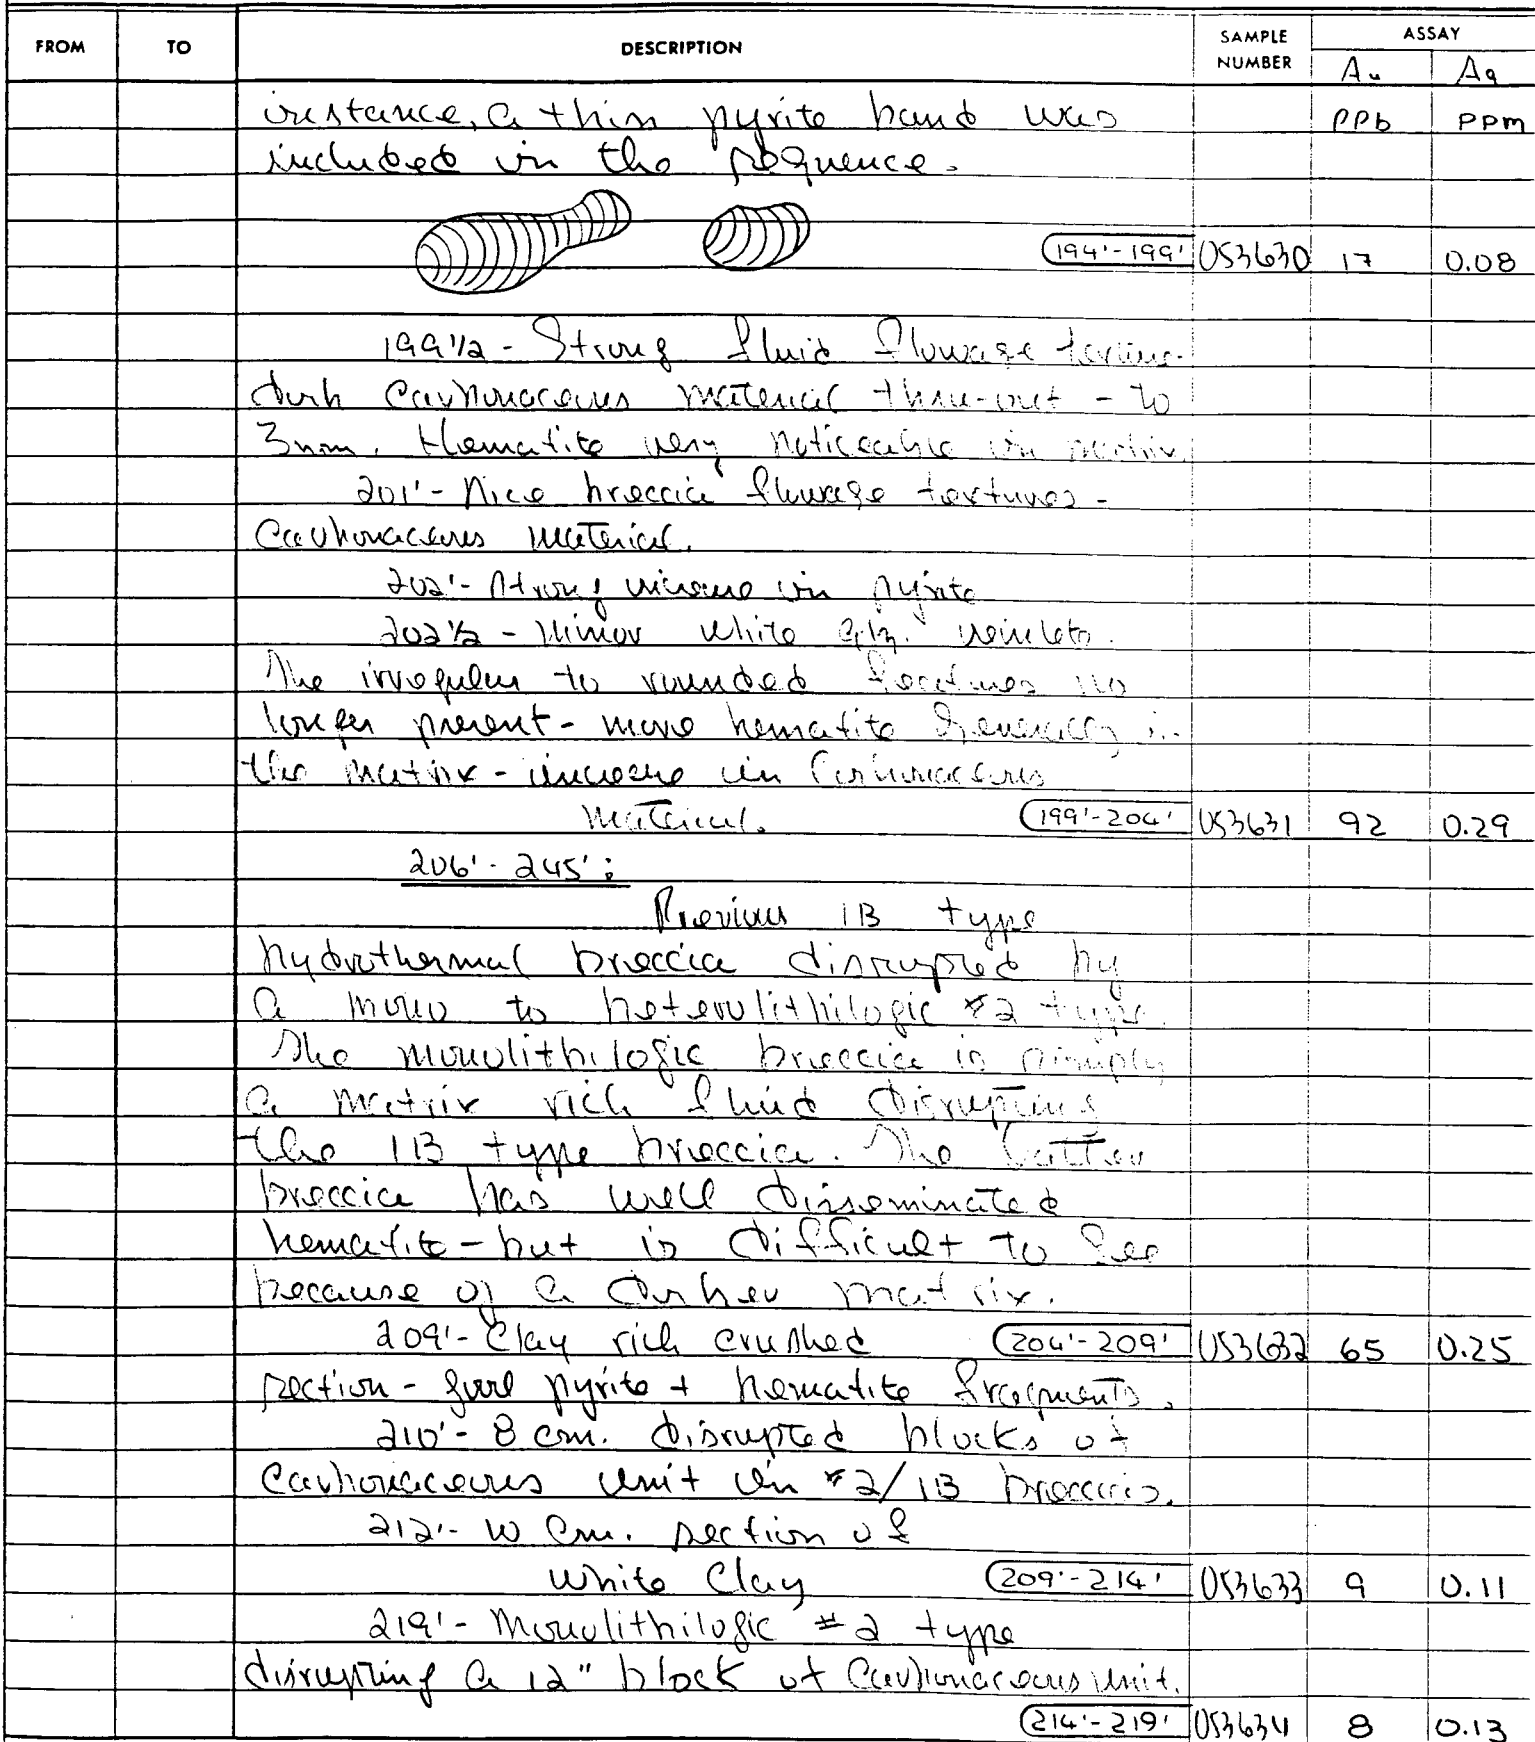 FROM TO DESCRIPTION SAMPLE NUMBER ASSAY
Au Ag
instance, a thin pyrite band was PPb PPm
included in the sequence.
194'-199' US3630 17 0.08
199½ - Strong fluid flowage texture-
dark Carbonaceous material thru-out - to
3mm. Hematite very noticeable in matrix.
201' - Nice breccia flowage textures -
Carbonaceous material.
202' - Strong increase in pyrite
202½ - Minor white qtz. veinlets.
The irregular to rounded features no
longer present - more hematite generally in
the matrix - increase in Carbonaceous
material. 199'-204' US3631 92 0.29
206' - 245':
Previous 1B type
hydrothermal breccia disrupted by
a mono to heterolithilogic #2 type.
The monolithilogic breccia is simply
a matrix rich fluid disrupting
the 1B type breccia. The latter
breccia has well disseminated
hematite - but is difficult to see
because of a darker matrix.
209' - Clay rich crushed 204'-209' US3632 65 0.25
section - good pyrite + hematite fragments.
210' - 8 cm. disrupted blocks of
Carbonaceous unit in #2/1B breccias.
212' - 10 cm. section of
white Clay 209'-214' US3633 9 0.11
219' - Monolithilogic #2 type
disrupting a 12" block of Carbonaceous unit.
214'-219' US3634 8 0.13